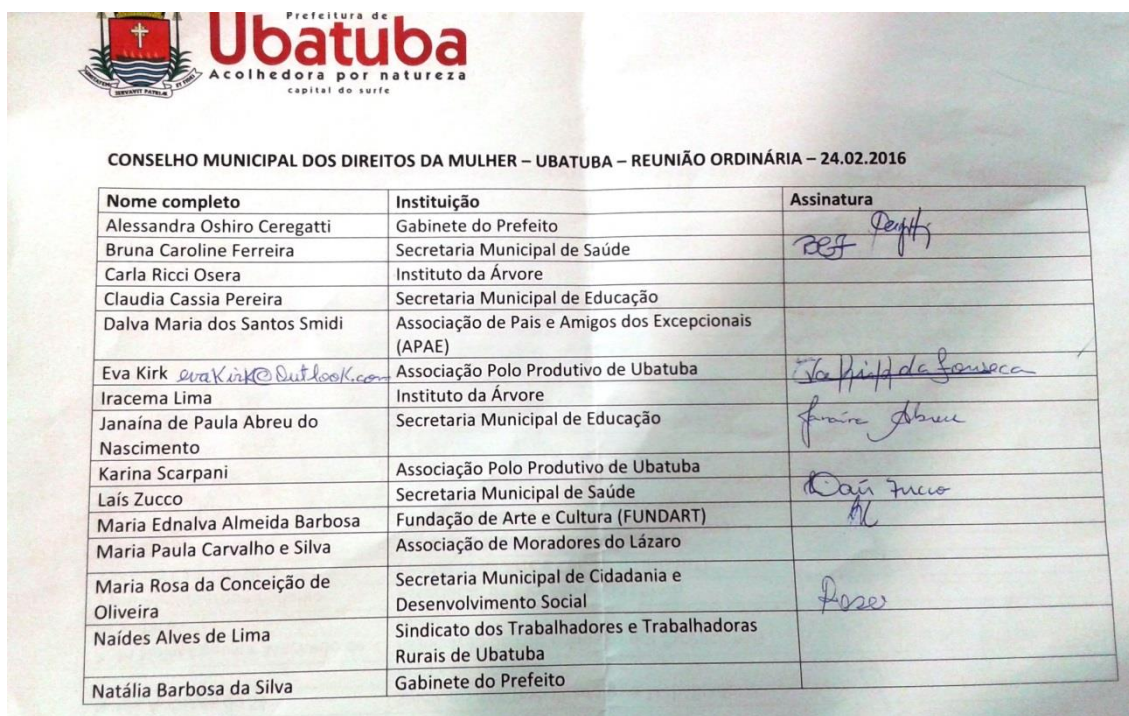 Prefeitura de
Ubatuba
Acolhedora por natureza
capital do surfe
SERVAVIT PATRIAE ET FIDEI
CONSELHO MUNICIPAL DOS DIREITOS DA MULHER – UBATUBA – REUNIÃO ORDINÁRIA – 24.02.2016
Nome completo Instituição Assinatura
Alessandra Oshiro Ceregatti Gabinete do Prefeito
Bruna Caroline Ferreira Secretaria Municipal de Saúde BCF
Carla Ricci Osera Instituto da Árvore
Claudia Cassia Pereira Secretaria Municipal de Educação
Dalva Maria dos Santos Smidi Associação de Pais e Amigos dos Excepcionais
(APAE)
Eva Kirk evaKirk@Outlook.com Associação Polo Produtivo de Ubatuba Eva da Fonseca
Iracema Lima Instituto da Árvore
Janaína de Paula Abreu do Secretaria Municipal de Educação Janaína Abreu
Nascimento
Karina Scarpani Associação Polo Produtivo de Ubatuba
Laís Zucco Secretaria Municipal de Saúde Laís Zucco
Maria Ednalva Almeida Barbosa Fundação de Arte e Cultura (FUNDART)
Maria Paula Carvalho e Silva Associação de Moradores do Lázaro
Maria Rosa da Conceição de Secretaria Municipal de Cidadania e
Oliveira Desenvolvimento Social
Naídes Alves de Lima Sindicato dos Trabalhadores e Trabalhadoras
Rurais de Ubatuba
Natália Barbosa da Silva Gabinete do Prefeito